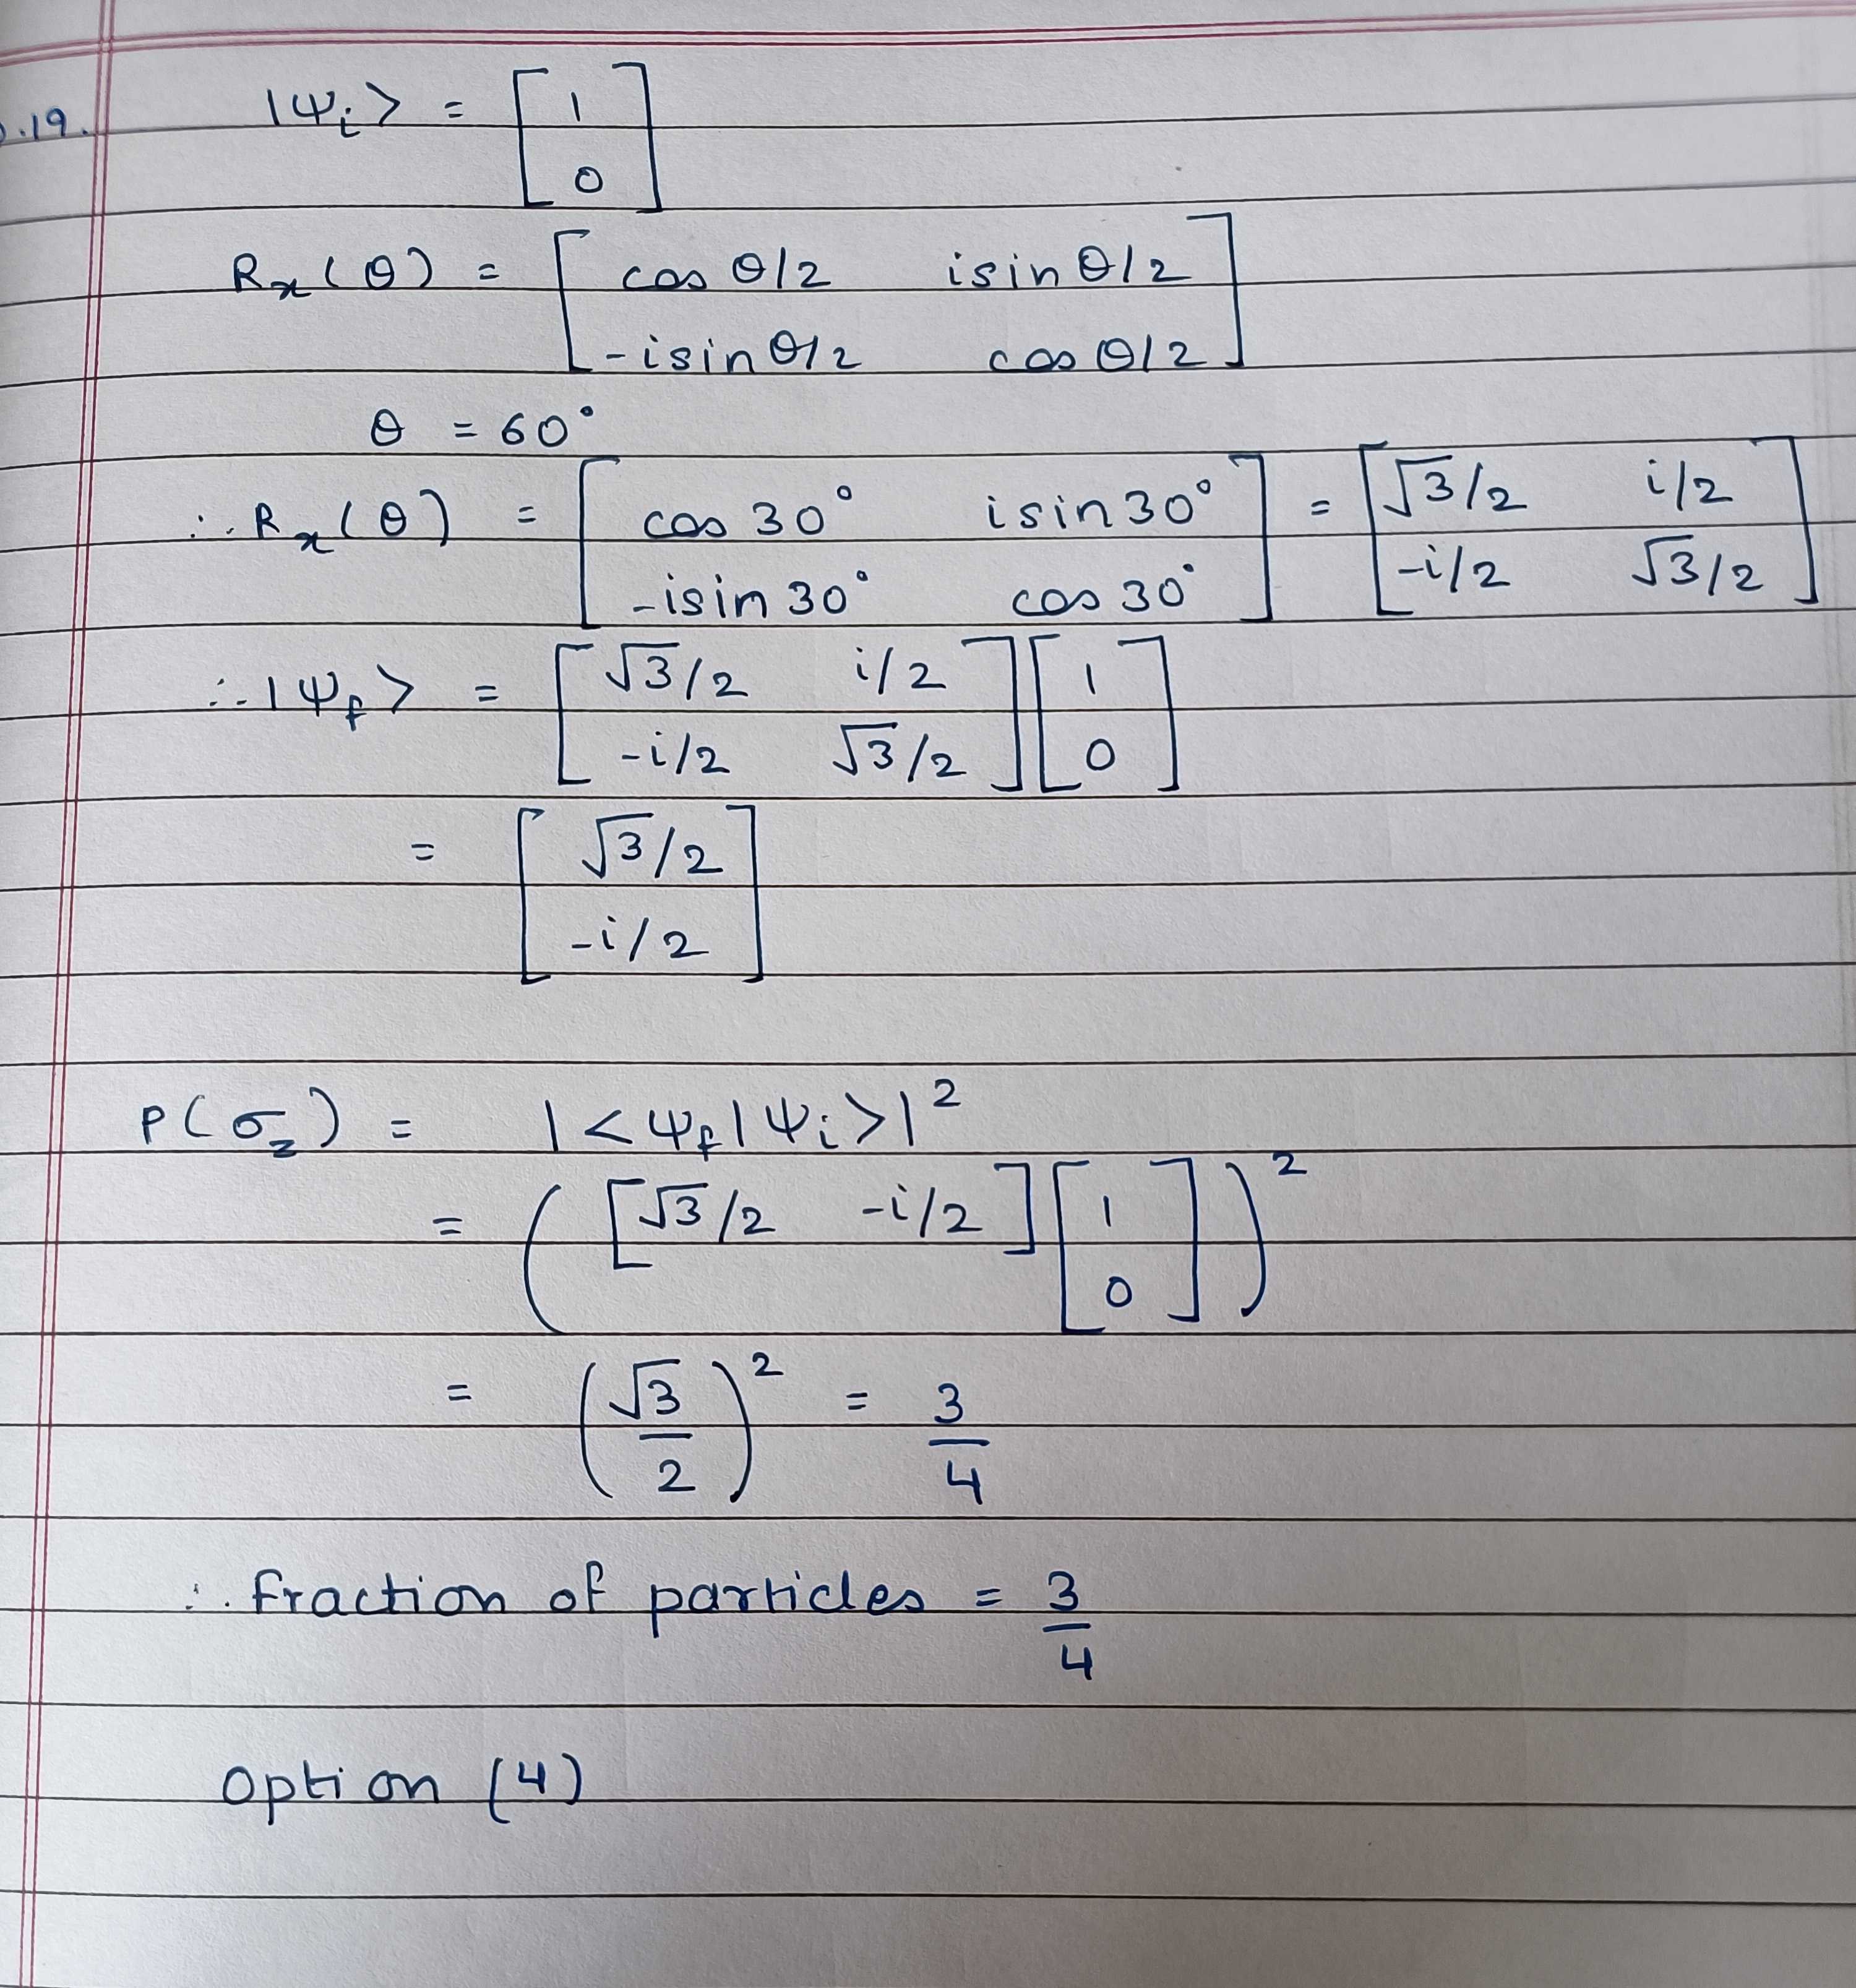 .19. |ψi> = [ 1
0 ]
Rx(θ) = [ cos θ/2 isin θ/2
-isin θ/2 cos θ/2 ]
θ = 60°
∴ Rx(θ) = [ cos 30° isin 30°
-isin 30° cos 30° ] = [ √3/2 i/2
-i/2 √3/2 ]
∴ |ψf> = [ √3/2 i/2
-i/2 √3/2 ] [ 1
0 ]
= [ √3/2
-i/2 ]
P(σz) = |<ψf|ψi>|²
= ( [ √3/2 -i/2 ] [ 1
0 ] )²
= (√3/2)² = 3/4
∴ Fraction of particles = 3/4
Option (4)